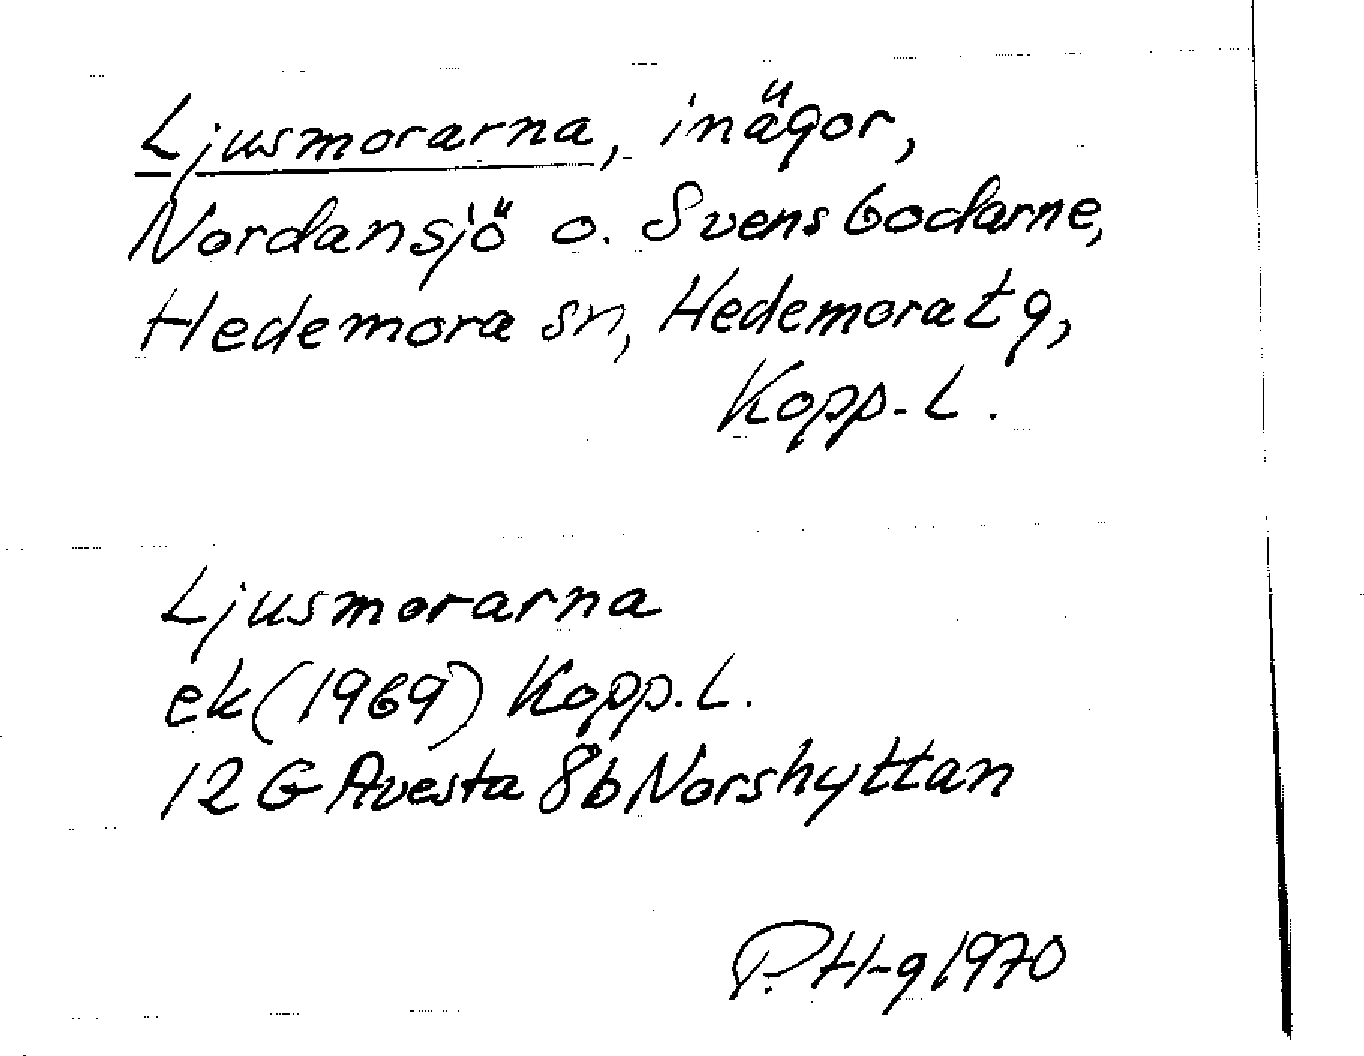 Ljusmorarna, inägor,
Nordansjö o. Svensbodarne,
Hedemora sn, Hedemora tg,
Kopp. L.
Ljusmorarna
ek (1969) Kopp. L.
12 G Avesta 8b Norshyttan
P. H-g 1970